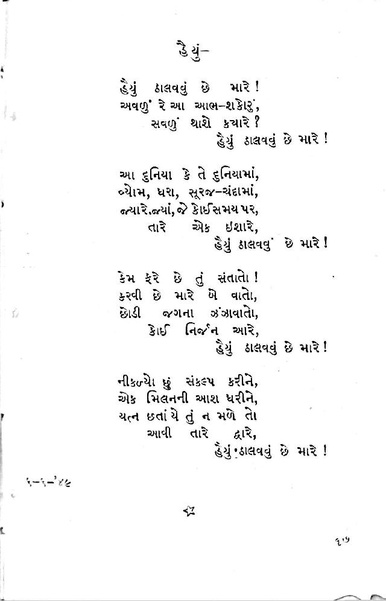 હૈયું–
હૈયું ઠાલવવું છે મારે !
અવળું રે આ આભ-શકોરું,
સવળું થાશે ક્યારે ?
હૈયું ઠાલવવું છે મારે !
આ દુનિયા કે તે દુનિયામાં,
વ્યોમ, ધરા, સૂરજ-ચંદામાં,
જ્યારે, જ્યાં, જે કોઈ સમય પર,
તારે એક ઇશારે,
હૈયું ઠાલવવું છે મારે !
કેમ ફરે છે તું સંતાતો !
કરવી છે મારે બે વાતો,
છોડી જગના ઝંઝાવાતો,
કોઈ નિર્જન આરે,
હૈયું ઠાલવવું છે મારે !
નીકળ્યો છું સંકલ્પ કરીને,
એક મિલનની આશ ધરીને,
યત્ન છતાંયે તું ન મળે તો
આવી તારે દ્વારે,
હૈયું ઠાલવવું છે મારે !
૬-૧-'૪૯
૬૫